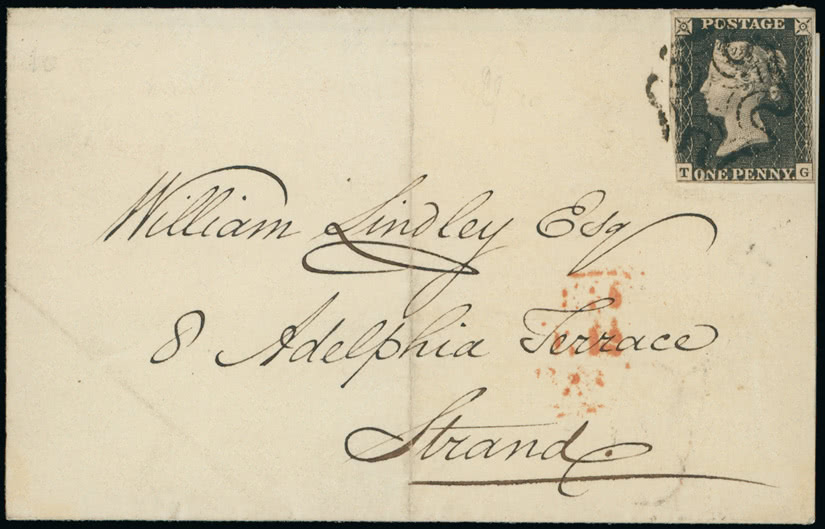 POSTAGE
T ONE PENNY. G
William Lindley Esq
8 Adelphia Terrace
Strand.